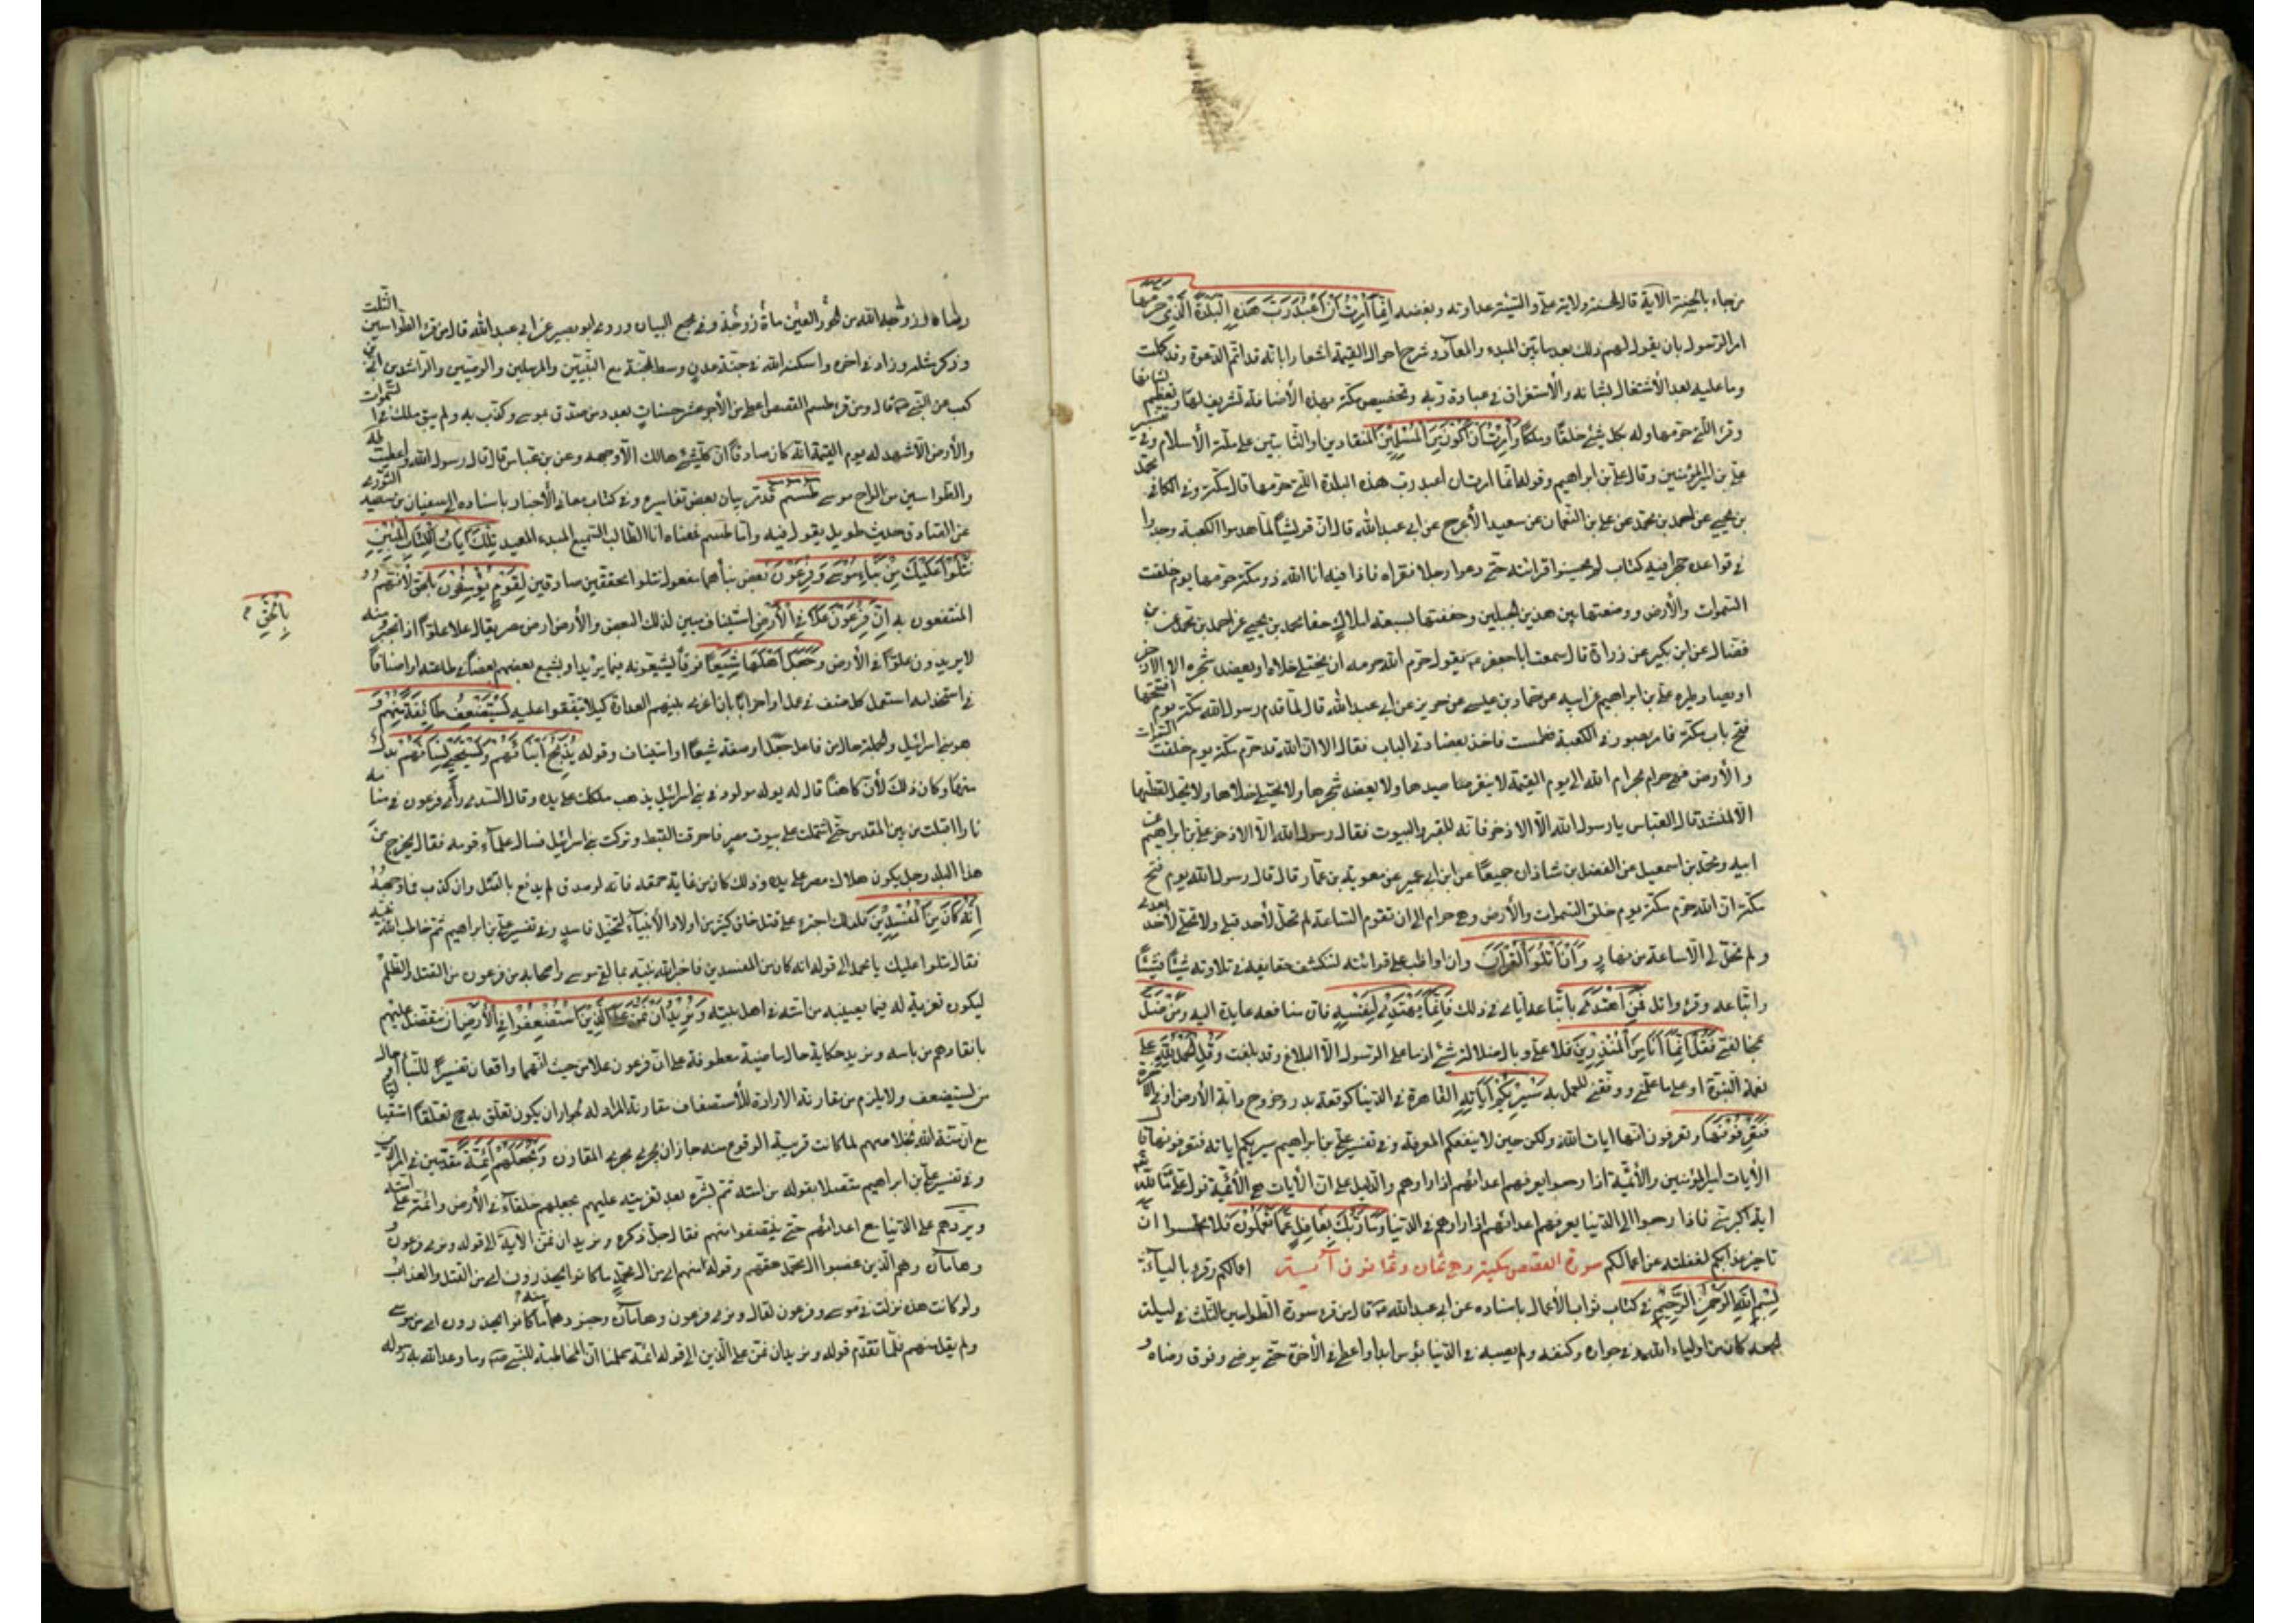 من جاء بالحسنة الآية قال الحسنة ولاية علي والسيئة عداوته وبغضه إِنَّمَا أُمِرْتُ أَنْ أَعْبُدَ رَبَّ هَذِهِ الْبَلْدَةِ الَّذِي حَرَّمَهَا
امر الرسول بان يقول لهم ذلك بعد ما بين المبدء والمعاد وشرح احوال القيمة اشعارا بانه قد اتم الدعوة وقد كملت
وما عليه بعد الا الاشتغال بشانه والاستغراق في عبادة ربه وتخصيص مكة بهذه الأضافة تشريف لها وتعظيم لشانها
وقرئ التي حرمها وله كل شيء خلقًا وملكًا وَأُمِرْتُ أَنْ أَكُونَ مِنَ الْمُسْلِمِينَ المنقادين او الثابتين على ملة الأسلام وفي تفسير
علي بن ابراهيم وقوله انما امرت ان اعبد رب هذه البلدة التي حرمها قال مكة وفي الكافي محمد
بن يحيى عن احمد بن محمد عن علي بن النعمان عن سعيد الأعرج عن ابي عبد الله قال ان قريشًا لما هدموا الكعبة وجدوا
في قواعده حجرا فيه كتاب لم يحسنوا قرائته حتى دعوا رجلا فقراه فاذا فيه انا الله ذو بكة حرمتها يوم خلقت
السموات والأرض ووضعتها بين هذين الجبلين وحففتها بسبعة املاك حفا محمد بن يحيى عن احمد بن محمد عن بن
فضال عن ابن بكير عن زرارة قال سمعت ابا جعفر يقول حرم الله حرمه ان يختلى خلاه او يعضد شجره الا الاذخر
او يصاد طيره علي بن ابراهيم عن ابيه عن حماد بن عيسى عن حريز عن ابي عبد الله قال لما قدم رسول الله مكة يوم افتتحها
فتح باب مكة فامر بصور في الكعبة فطمست فاخذ بعضادتي الباب فقال الا ان الله قد حرم مكة يوم خلقت السموات
والأرض فهي حرام بحرام الله الى يوم القيمة لا ينفر صيدها ولا يعضد شجرها ولا يختلى خلاها ولا تحل لقطتها
الا لمنشد قال العباس يا رسول الله الا الاذخر فانه للقبر والبيوت فقال رسول الله الا الاذخر علي بن ابراهيم عن
ابيه ومحمد بن اسمعيل عن الفضل بن شاذان جميعًا عن ابن ابي عمير عن معوية بن عمار قال قال رسول الله يوم فتح
مكة ان الله حرم مكة يوم خلق السموات والأرض وهي حرام الى ان تقوم الساعة لم تحل لأحد قبلي ولا تحل لأحد بعدي
ولم تحل لي الا ساعة من نهار وَأَنْ أَتْلُوَ الْقُرْآنَ وان اواظب على قرائته لتنكشف حقايقه في تلاوته شيئًا فشيئًا
واتباعه وقرئ واتل فَمَنِ اهْتَدَى باتباعه اياي في ذلك فَإِنَّمَا يَهْتَدِي لِنَفْسِهِ فان منافعه عايدة اليه وَمَنْ ضَلَّ
بمخالفتي فَقُلْ إِنَّمَا أَنَا مِنَ الْمُنْذِرِينَ فلا علي وبال ضلاله شيء اذ ما على الرسول الا البلاغ وقد بلغت وَقُلِ الْحَمْدُ لِلَّهِ على
نعمة النبوة او على ما علمني ووفقني للعمل به سَيُرِيكُمْ آيَاتِهِ القاهرة في الدنيا كوقعة بدر وخروج دابة الأرض او في الآخرة
فَتَعْرِفُونَهَا وتعرفون انها ايات الله ولكن حين لا ينفعكم المعرفة وفي تفسير علي بن ابراهيم سيريكم اياته فتعرفونها قال
الآيات امير المؤمنين والأئمة اذا رجعوا يعرفهم اعدائهم اذا راوهم والدليل على ان الآيات هي الأئمة قول علي ما لله
اية اكبر مني فاذا رجعوا الى الدنيا يعرفهم اعدائهم اذا راوهم في الدنيا وَمَا رَبُّكَ بِغَافِلٍ عَمَّا تَعْمَلُونَ فلا تحسبوا ان
تاخير عذابكم لغفلته عن اعمالكم سورة القصص مكية وهي ثمان وثمانون آية اعمالكم وقرئ بالياء
بِسْمِ اللَّهِ الرَّحْمَنِ الرَّحِيمِ في كتاب ثواب الأعمال باسناده عن ابي عبد الله قال من قرء سورة الطواسين الثلث في ليلة
الجمعة كان من اولياء الله وفي جواره وكنفه ولم يصبه في الدنيا بؤس ابدا واعطي في الآخرة حتى يرضى وفوق رضاه
وزوجه الله من الحور العين مأة زوجة وفي مجمع البيان وروى ابو بصير عن ابي عبد الله قال من قرء الطواسين الثلث
وذكر مثله وزاد في اخره واسكنه الله في جنة عدن وسط الجنة مع النبيين والمرسلين والوصيين والراشدين ابي بن
كعب عن النبي قال ومن قرء طسم القصص اعطي من الأجر عشر حسنات بعدد من صدق بموسى وكذب به ولم يبق ملك في السموات
والأرض الا شهد له يوم القيمة انه كان صادقًا ان كل شيء هالك الا وجهه وعن بن عباس قال قال رسول الله واعطيت طه
والطواسين من الواح موسى طسم قد مر بيان بعض تفاسيره وفي كتاب معاني الأخبار باسناده الى سفيان بن سعيد الثوري
عن الصادق حديث طويل يقول فيه واما طسم فمعناه انا الطالب السميع المبدء المعيد تِلْكَ آيَاتُ الْكِتَابِ الْمُبِينِ
نَتْلُوا عَلَيْكَ مِنْ نَبَإِ مُوسَى وَفِرْعَوْنَ بعض نبأهما مفعول نتلوا محققين صادقين لِقَوْمٍ يُؤْمِنُونَ لأنهم
بِالْحَقِّ
المنتفعون به إِنَّ فِرْعَوْنَ عَلَا فِي الْأَرْضِ استيناف مبين لذلك البعض والأرض ارض مصر يقال علا علوًا اذا تجبر ومنه
لا يريدون علوًا في الأرض وَجَعَلَ أَهْلَهَا شِيَعًا فرقًا يشيعونه فيما يريد او يشيع بعضهم بعضًا في طاعته او اصنافًا
في استخدامه استعمل كل صنف في عمل او احزابًا بان اغرى بينهم العداوة كيلا يتفقوا عليه يَسْتَضْعِفُ طَائِفَةً مِنْهُمْ و
هم بنو اسرائيل والجملة حال من فاعل جعل او صفة شيعًا او استيناف وقوله يُذَبِّحُ أَبْنَاءَهُمْ وَيَسْتَحْيِي نِسَاءَهُمْ بدل
منها وكان ذلك لأن كاهنًا قال له يولد مولود في بني اسرائيل يذهب ملكك على يده وقال السدي رأى فرعون في منامه
نارا اقبلت من بيت المقدس حتى اشتملت على بيوت مصر فاحرقت القبط وتركت بني اسرائيل فسال علماء قومه فقال يخرج من
هذا البلد رجل يكون هلاك مصر على يده وذلك كان من غاية حمقه فانه لو صدق لم يدفع بالقتل وان كذب فما وجهه
إِنَّهُ كَانَ مِنَ الْمُفْسِدِينَ فلذلك اجترء على قتل خلق كثير من اولاد الأنبياء لتخيل فاسد وفي تفسير علي بن ابراهيم ثم خاطب الله نبيه
فقال نتلوا عليك يا محمد الى قوله انه كان من المفسدين فاخبر الله نبيه بما لقي موسى واصحابه من فرعون من القتل والظلم
ليكون تعزية له فيما يصيبه من امته في اهل بيته وَنُرِيدُ أَنْ نَمُنَّ عَلَى الَّذِينَ اسْتُضْعِفُوا فِي الْأَرْضِ ان نتفضل عليهم
بانقاذهم من باسه ونريد حكاية حال ماضية معطوفة على ان فرعون علا من حيث انهما واقعان تفسيرًا للنبا او حال
من يستضعف ولا يلزم من مقارنة الارادة للأستضعاف مقارنة المراد له لجواز ان يكون تعلق به ح تعلقًا استقباليا
مع ان منة الله بخلاصهم لما كانت قريبة الوقوع منه جاز ان يجرى مجرى المقارن وَنَجْعَلَهُمْ أَئِمَّةً مقدمين في امر الدين
وفي تفسير علي بن ابراهيم متصلا بقوله من امته ثم بشره بعد تعزيته انه عليهم بجعلهم خلفاء في الأرض وائمة على امته
ويردهم على الدنيا مع اعدائهم حتى ينتصفوا منهم فقال جل ذكره ونريد ان نمن الآية الى قوله ونري فرعون
وهامان وهم الذين غصبوا ال محمد حقهم وقوله منهم اي من ال محمد ما كانوا يحذرون اي من القتل والعذاب
ولو كانت هذه نزلت في موسى وفرعون لقال ونري فرعون وهامان وجنودهما منه ما كانوا يحذرون اي من موسى
ولم يقل منهم فلما تقدم قوله ونريد ان نمن على الذين الى قوله ائمة علمنا ان المخاطبة للنبي وما وعد الله به رسوله